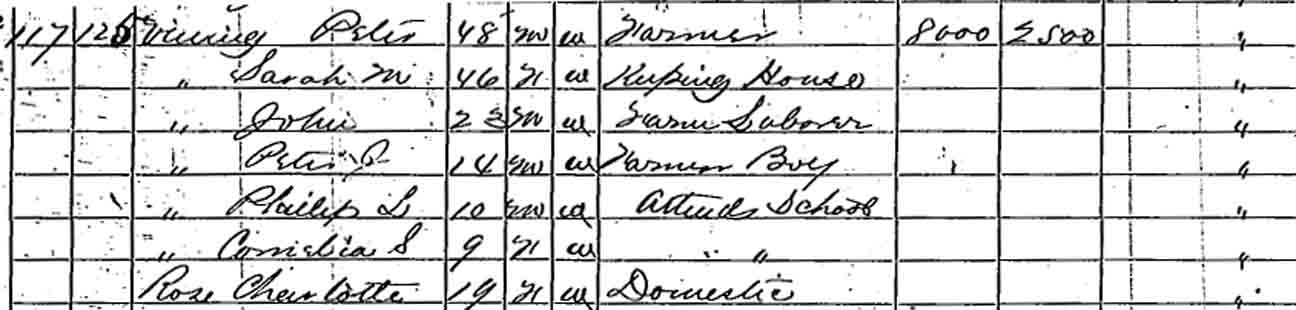 117 125 Vining Peter 48 M W Farmer 8000 2500 "
" Sarah M 46 F W Keeping House "
" John 22 M W Farm Laborer "
" Peter 14 M W Farmer Boy "
" Philip L 10 M W Attends School "
" Cornelia S 9 F W " " "
Rose Charlotte 19 F W Domestic "